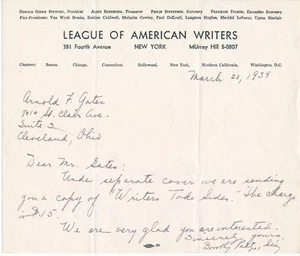 DONALD OGDEN STEWART, President ALEX BERNSTEIN, Treasurer PHILIP STEVENSON, Secretary FRANKLIN FOLSOM, Executive Secretary
Vice-Presidents: Van Wyck Brooks, Erskine Caldwell, Malcolm Cowley, Paul DeKruif, Langston Hughes, Meridel LeSueur, Upton Sinclair
LEAGUE OF AMERICAN WRITERS
381 Fourth Avenue NEW YORK MUrray Hill 5-0807
CHAPTERS: Boston, Chicago, Connecticut, Hollywood, New York, Northern California, Washington, D.C.
March 20, 1939
Arnold F. Gates
7016 St. Clair Ave.
Suite 2
Cleveland, Ohio
Dear Mr. Gates:
Under separate cover we are sending
you a copy of "Writers Take Sides." The charge
is $.15.
We are very glad you are interested.
Sincerely yours,
Dorothy